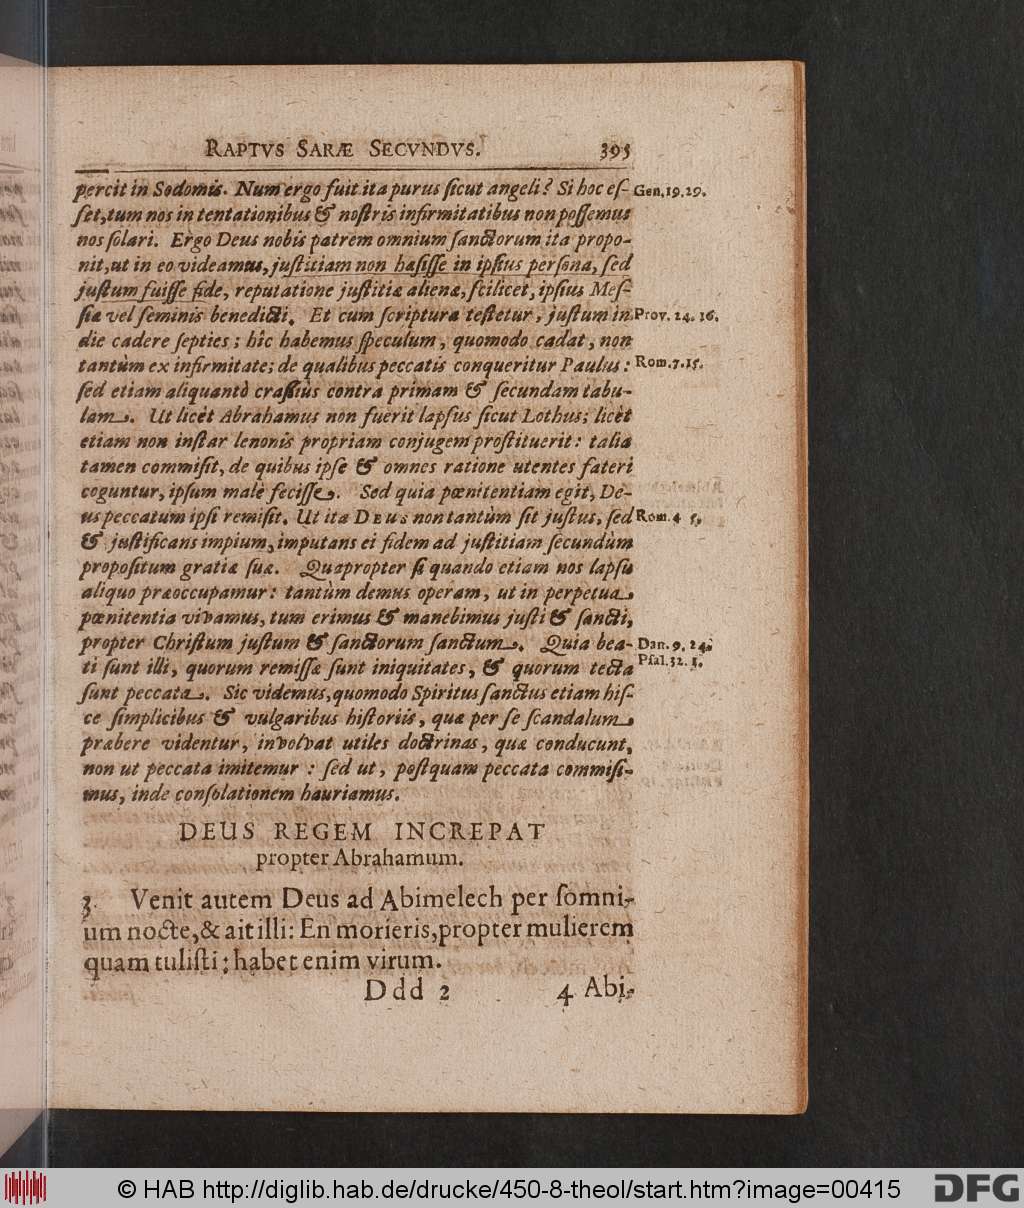 RAPTVS SARÆ SECVNDVS. 395
percit in Sodomis. Num ergo fuit ita purus ſicut angeli? Si hoc eſ- Gen. 19. 29.
ſet, tum nos in tentationibus & noſtris infirmitatibus non poſſemus
nos ſolari. Ergo Deus nobis patrem omnium ſanctorum ita propo-
nit, ut in eo videamus, juſtitiam non haſiſſe in ipſius perſona, ſed
juſtum fuiſſe fide, reputatione juſtitiæ alienæ, ſcilicet, ipſius Meſ-
ſiæ vel ſeminis benedicti. Et cum ſcriptura teſtetur, juſtum in Prov. 24. 16.
die cadere ſepties; hîc habemus ſpeculum, quomodo cadat, non
tantùm ex infirmitate; de qualibus peccatis conqueritur Paulus: Rom. 7. 15.
ſed etiam aliquantò craſſiùs contra primam & ſecundam tabu-
lam. Ut licèt Abrahamus non fuerit lapſus ſicut Lothus; licèt
etiam non inſtar lenonis propriam conjugem proſtituerit: talia
tamen commiſit, de quibus ipſe & omnes ratione utentes fateri
coguntur, ipſum malè feciſſe. Sed quia pœnitentiam egit, De-
us peccatum ipſi remiſit. Ut ita DEUS non tantùm ſit juſtus, ſed Rom. 4 5.
& juſtificans impium, imputans ei fidem ad juſtitiam ſecundùm
propoſitum gratiæ ſuæ. Quapropter ſi quando etiam nos lapſu
aliquo præoccupamur: tantùm demus operam, ut in perpetua
pœnitentia vivamus, tum erimus & manebimus juſti & ſancti,
propter Chriſtum juſtum & ſanctorum ſanctum. Quia bea- Dan. 9. 24.
ti ſunt illi, quorum remiſſæ ſunt iniquitates, & quorum tecta Pſal. 32. 1.
ſunt peccata. Sic videmus, quomodo Spiritus ſanctus etiam hiſ-
ce ſimplicibus & vulgaribus hiſtoriis, quæ per ſe ſcandalum
præbere videntur, involvat utiles doctrinas, quæ conducunt,
non ut peccata imitemur: ſed ut, poſtquam peccata commiſi-
mus, inde conſolationem hauriamus.
DEUS REGEM INCREPAT
propter Abrahamum.
3. Venit autem Deus ad Abimelech per ſomni-
um nocte, & ait illi: En morieris, propter mulierem
quam tuliſti; habet enim virum.
Ddd 2 4 Abi-
© HAB http://diglib.hab.de/drucke/450-8-theol/start.htm?image=00415 DFG